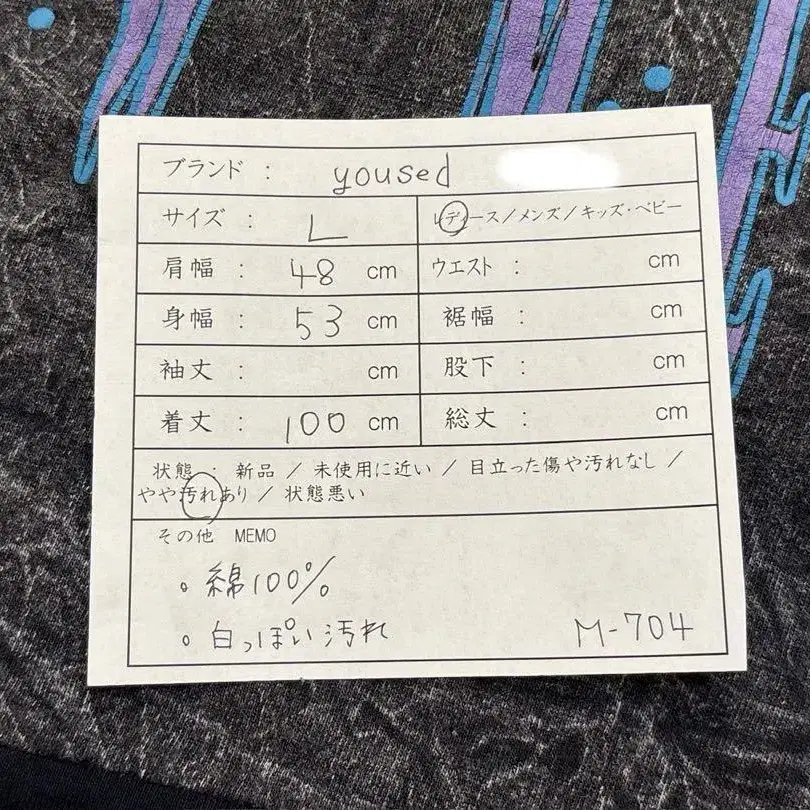 ブランド : yoused
サイズ : L レディース/メンズ/キッズ・ベビー
肩幅 : 48 cm ウエスト : cm
身幅 : 53 cm 裾幅 : cm
袖丈 : cm 股下 : cm
着丈 : 100 cm 総丈 : cm
状態 : 新品 / 未使用に近い / 目立った傷や汚れなし /
やや汚れあり / 状態悪い
その他 MEMO
。綿100%
。白っぽい汚れ
M-704